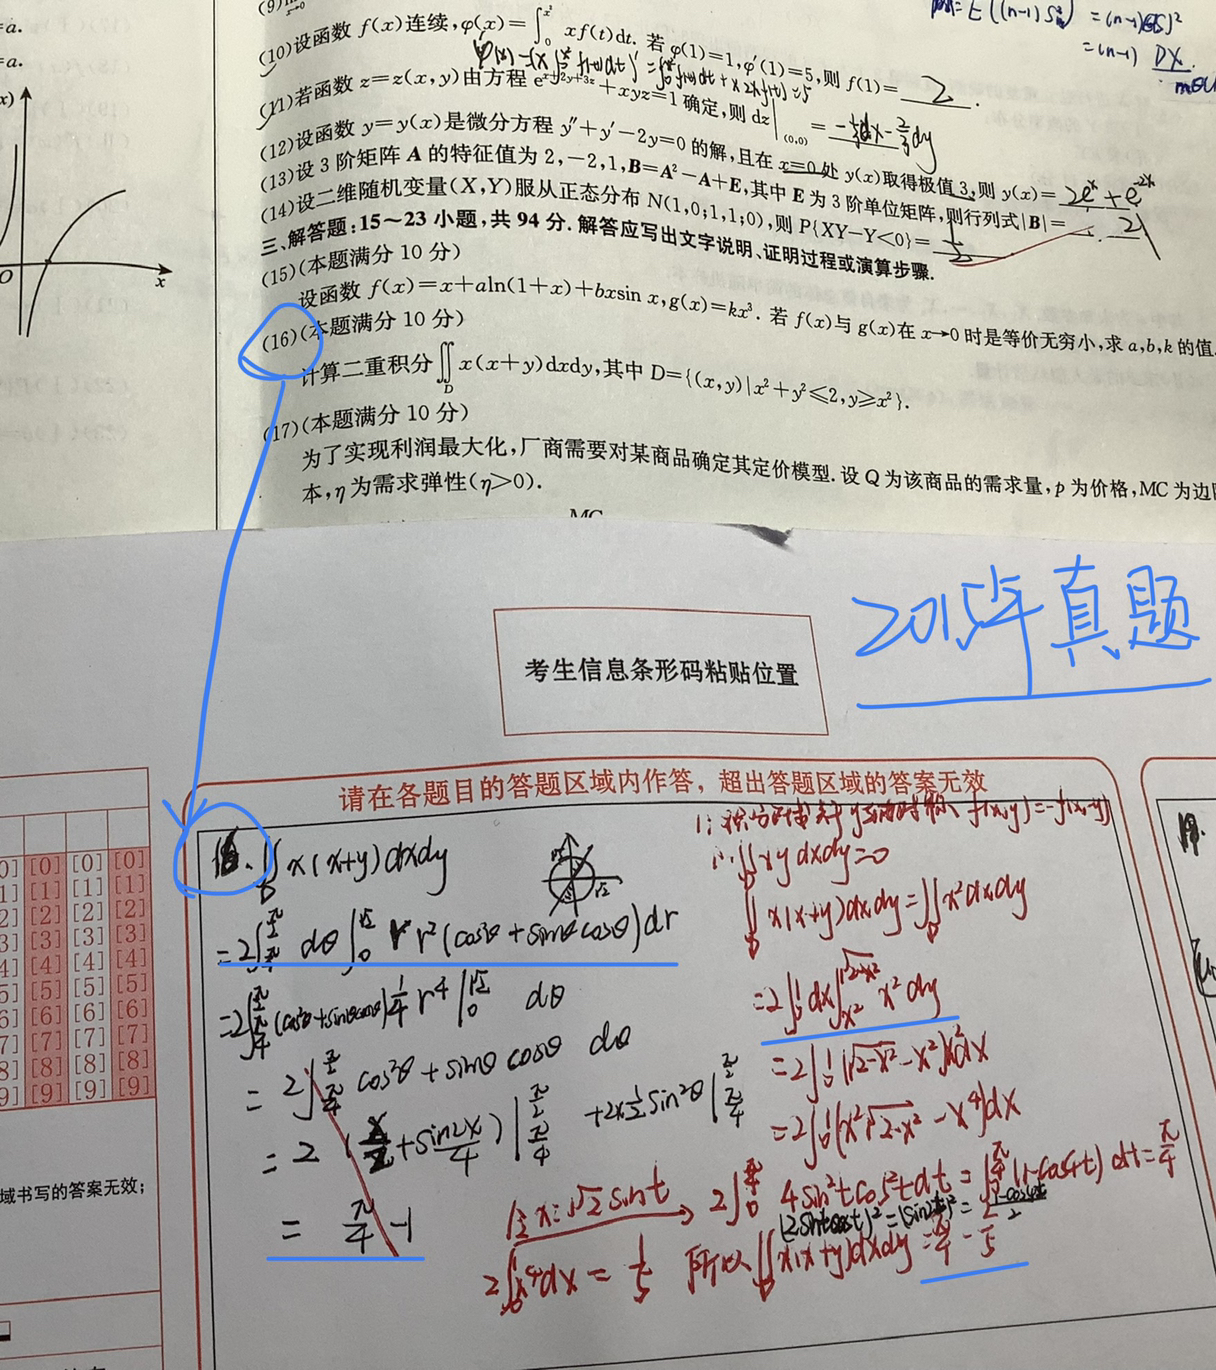 =a.
=a.
x)
O
x
(9)
(10)设函数 f(x)连续,φ(x)=∫₀^{x²} xf(t)dt. 若 φ(1)=1,φ′(1)=5,则 f(1)= 2 .
(11)若函数 z=z(x,y)由方程 e^{x+2y+3z}+xyz=1 确定,则 dz|(0,0) = -⅓dx-⅔dy
(12)设函数 y=y(x)是微分方程 y″+y′-2y=0 的解,且在 x=0 处 y(x)取得极值 3,则 y(x)= 2eˣ+e^{-2x}
(13)设 3 阶矩阵 A 的特征值为 2,-2,1,B=A²-A+E,其中 E 为 3 阶单位矩阵,则行列式|B|= 21
(14)设二维随机变量(X,Y)服从正态分布 N(1,0;1,1;0),则 P{XY-Y<0}= ½
三、解答题:15～23 小题,共 94 分. 解答应写出文字说明、证明过程或演算步骤.
(15)(本题满分 10 分)
设函数 f(x)=x+aln(1+x)+bxsin x,g(x)=kx³. 若 f(x)与 g(x)在 x→0 时是等价无穷小,求 a,b,k 的值.
(16)(本题满分 10 分)
计算二重积分∬_D x(x+y)dxdy,其中 D={(x,y)|x²+y²⩽2,y⩾x²}.
(17)(本题满分 10 分)
为了实现利润最大化,厂商需要对某商品确定其定价模型. 设 Q 为该商品的需求量,p 为价格,MC 为边
本,η 为需求弹性(η>0).
MC
2015年真题
考生信息条形码粘贴位置
请在各题目的答题区域内作答，超出答题区域的答案无效
16. ∬_D x(x+y)dxdy
=2∫_{π/4}^{π/2} dθ∫₀^{√2} r r²(cos²θ+sinθcosθ)dr
=2∫_{π/4}^{π/2}(cos²θ+sinθcosθ)¼r⁴|₀^{√2} dθ
=2∫_{π/4}^{π/2} cos²θ+sinθcosθ dθ
=2(x/2+sin2x/4)|_{π/4}^{π/2} +2×½sin²θ|_{π/4}^{π/2}
=π/4-1
∴∬_D xydxdy=0
∬_D x(x+y)dxdy=∬_D x²dxdy
=2∫₀¹dx∫_{x²}^{√2-x²} x²dy
=2∫₀¹(√2-x²-x²)x²dx
=2∫₀¹(x²√2-x²-x⁴)dx
令x=√2sint → 2∫₀^{π/4} 4sin²tcos²tdt=∫₀^{π/4}(1-cos4t)dt=π/4
(2sintcost)²=(sin2t)²=(1-cos4t)/2
2∫₀¹x⁴dx=⅖ 所以∬_D x(x+y)dxdy=π/4-⅖
[0] [0] [0]
[1] [1] [1]
[2] [2] [2]
[3] [3] [3]
[4] [4] [4]
[5] [5] [5]
[6] [6] [6]
[7] [7] [7]
[8] [8] [8]
[9] [9] [9]
域书写的答案无效；